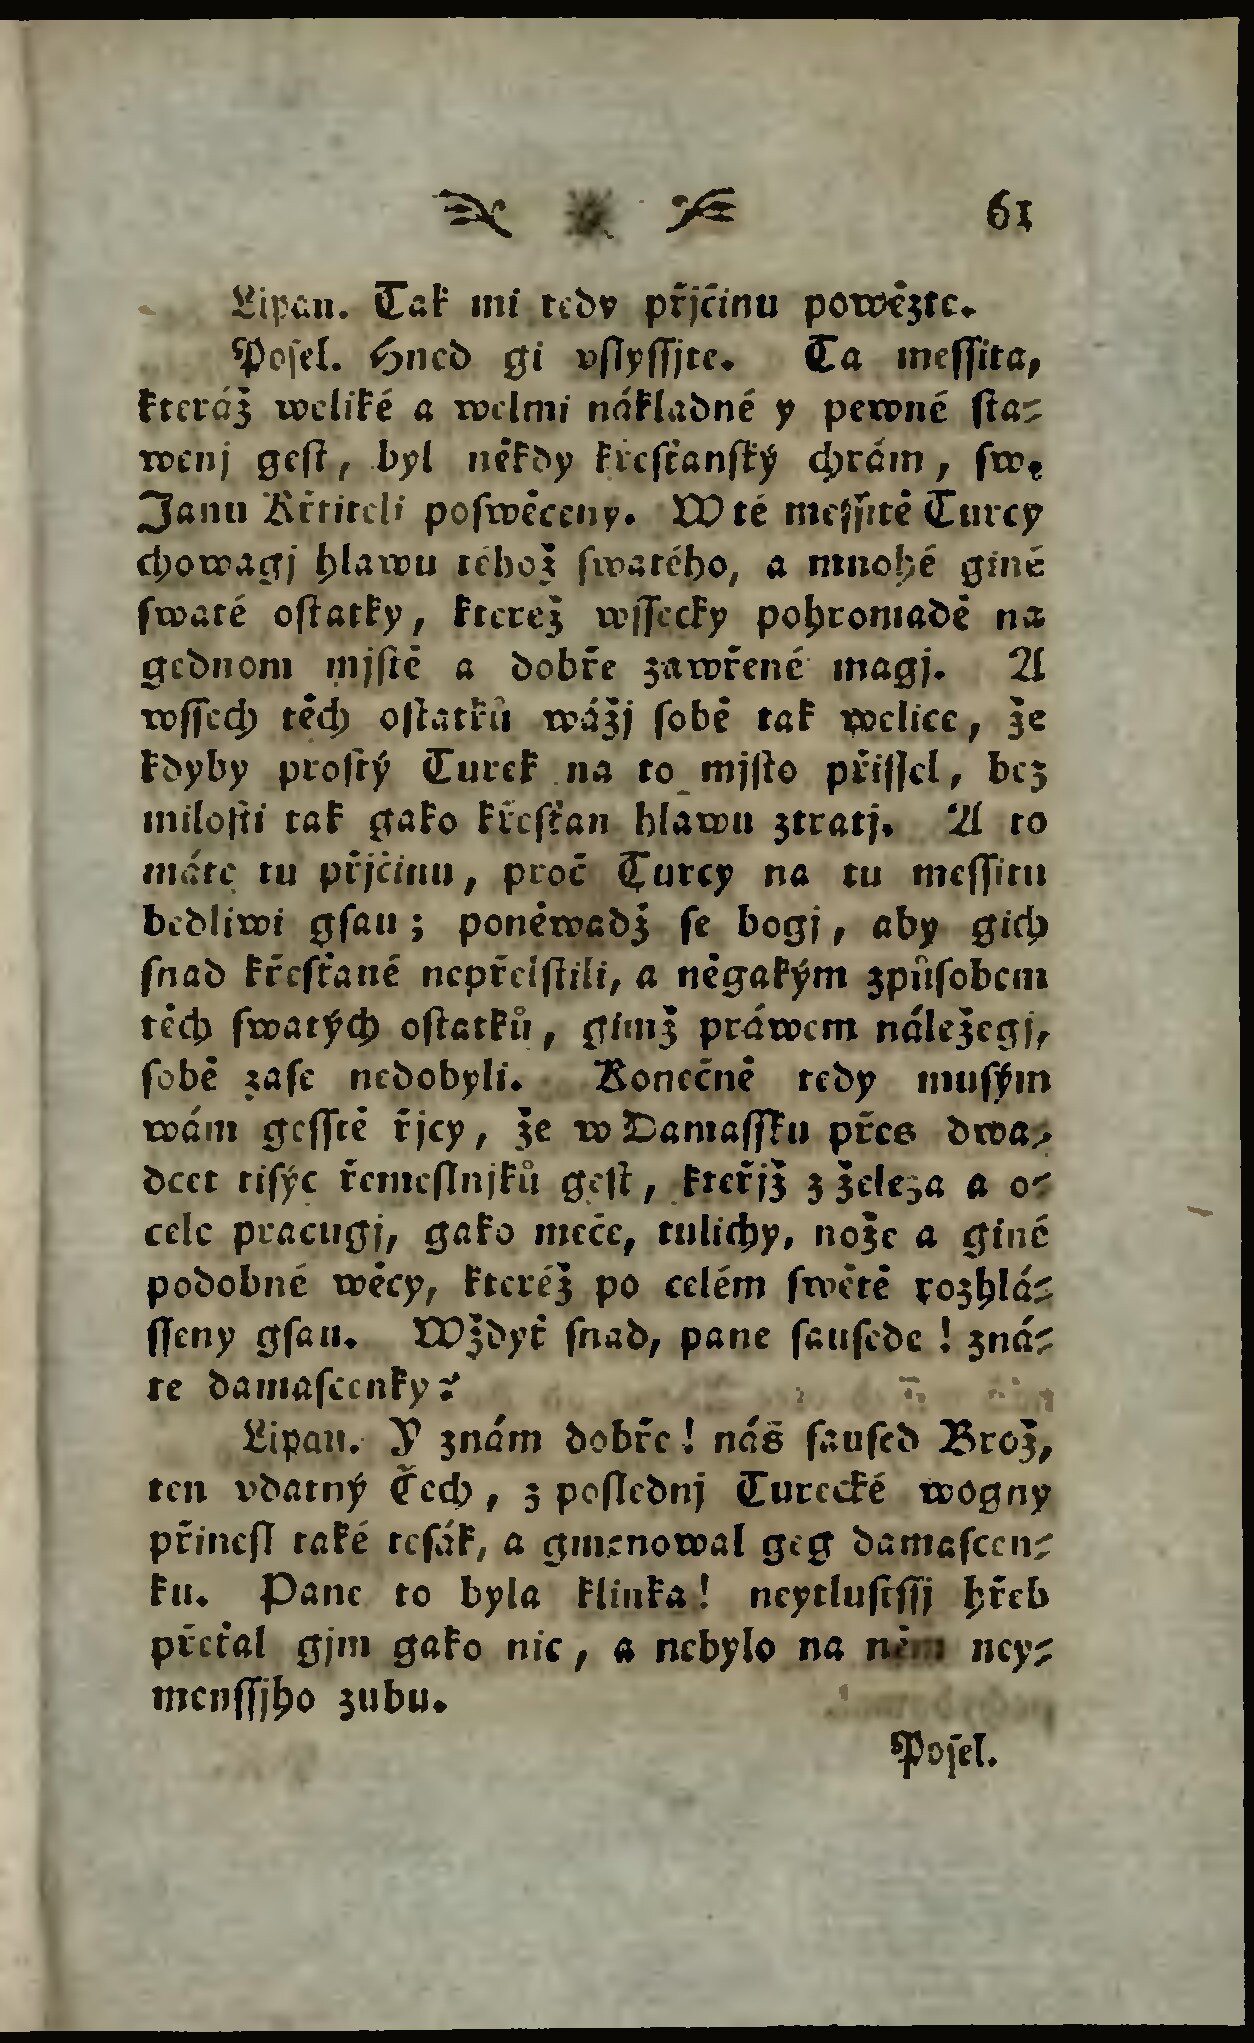 61
Lipau. Tak mi tedy přjčinu powězte.
Poſel. Hned gi vſlyſſjte. Ta meſſita,
kteráž weliké a welmi nákladné y pewné ſta-
wenj geſt, byl někdy křeſťanſký chrám, ſw.
Janu Křtiteli poſwěceny. W té meſſitě Turcy
chowagj hlawu téhož ſwatého, a mnohé giné
ſwaté oſtatky, kterež wſſecky pohromadě na
gednom mjſtě a dobře zawřené magj. A
wſſech těch oſtatků wážj ſobě tak welice, že
kdyby proſtý Turek na to mjſto přiſſel, bez
miloſti tak gako křeſťan hlawu ztratj. A to
máte tu přjčinu, proč Turcy na tu meſſitu
bedliwi gſau; poněwadž ſe bogj, aby gich
ſnad křeſťané nepřelſtili, a něgakým způſobem
těch ſwatých oſtatků, gimž práwem náležegj,
ſobě zaſe nedobyli. Konečně tedy muſým
wám geſſtě řjcy, že w Damaſſku přes dwa-
dcet tiſýc řemeſlnjků geſt, kteřjž z železa a o-
cele pracugj, gako meče, tulichy, nože a giné
podobné wěcy, kteréž po celém ſwětě rozhlá-
ſſeny gſau. Wždyť ſnad, pane ſauſede! zná-
te damaſcenky?
Lipau. Y znám dobře! náš ſauſed Brož,
ten vdatný Čech, z poſlednj Turecké wogny
přineſl také teſák, a gmenowal geg damaſcen-
ku. Pane to byla klinka! neytluſtſſj hřeb
přeťal gjm gako nic, a nebylo na něm ney-
menſſjho zubu.
Poſel.